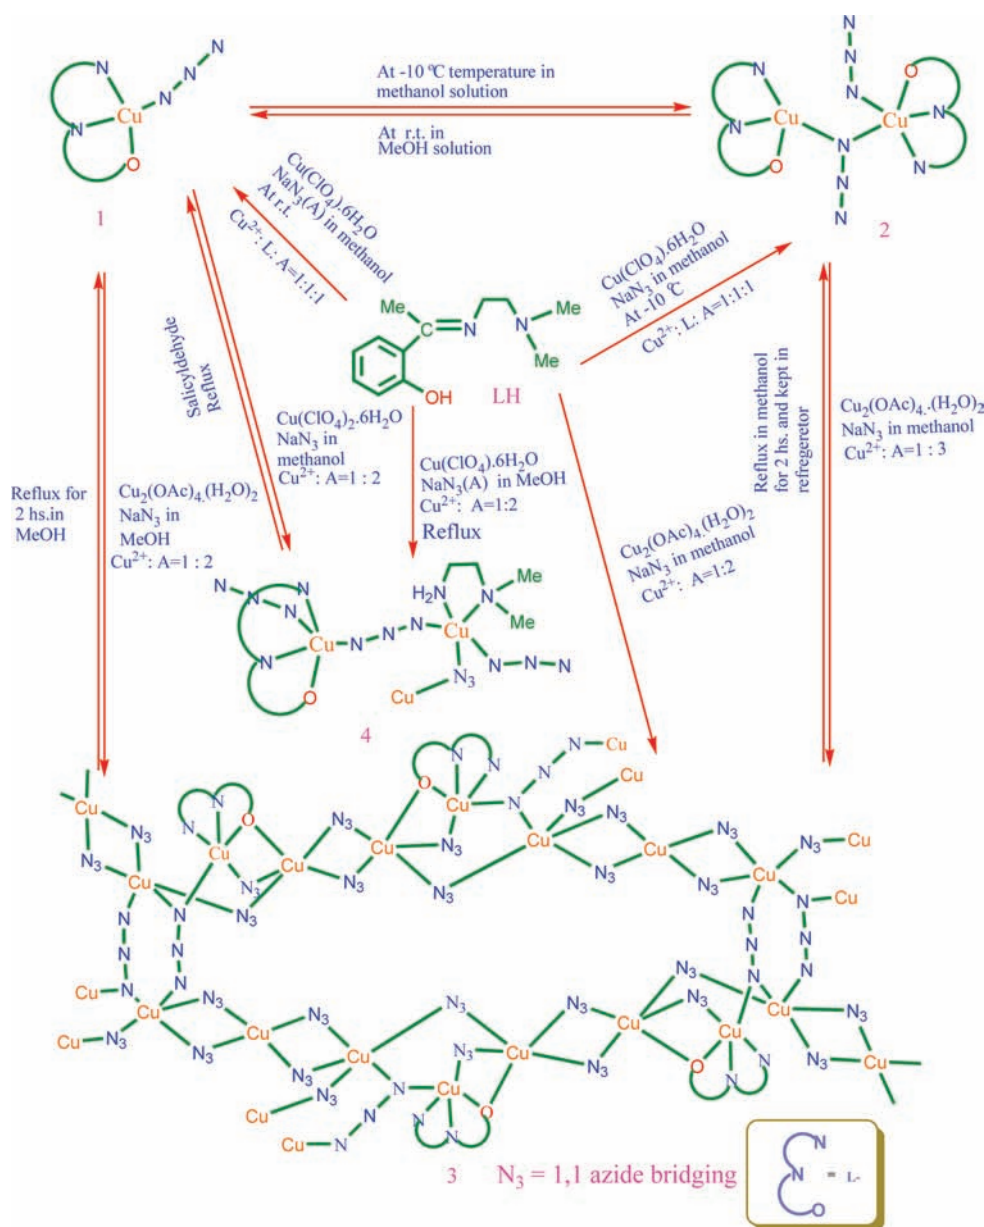 At -10 ºC temperature in
methanol solution
At r.t. in
MeOH solution
1
2
Cu(ClO4).6H2O
NaN3(A) in methanol
At r.t.
Cu2+: L: A=1:1:1
Cu(ClO4).6H2O
NaN3 in methanol
At -10 ºC
Cu2+: L: A=1:1:1
Me
C
N
N
Me
Me
OH
LH
Salicyldehyde
Reflux
Cu(ClO4)2.6H2O
NaN3 in
methanol
Cu2+: A=1 : 2
Cu(ClO4).6H2O
NaN3(A) in MeOH
Cu2+: A=1:2
Reflux
Reflux for
2 hs.in
MeOH
Cu2(OAc)4.(H2O)2
NaN3 in
MeOH
Cu2+: A=1 : 2
Cu2(OAc)4.(H2O)2
NaN3 in methanol
Cu2+: A=1:2
Reflux in methanol
for 2 hs. and kept in
refregeretor
Cu2(OAc)4.(H2O)2
NaN3 in methanol
Cu2+: A=1 : 3
H2N
N
Me
Me
Cu
N
N
N
Cu
N
N
N
N3
Cu
O
4
3 N3 = 1,1 azide bridging
N
N
O
= L-